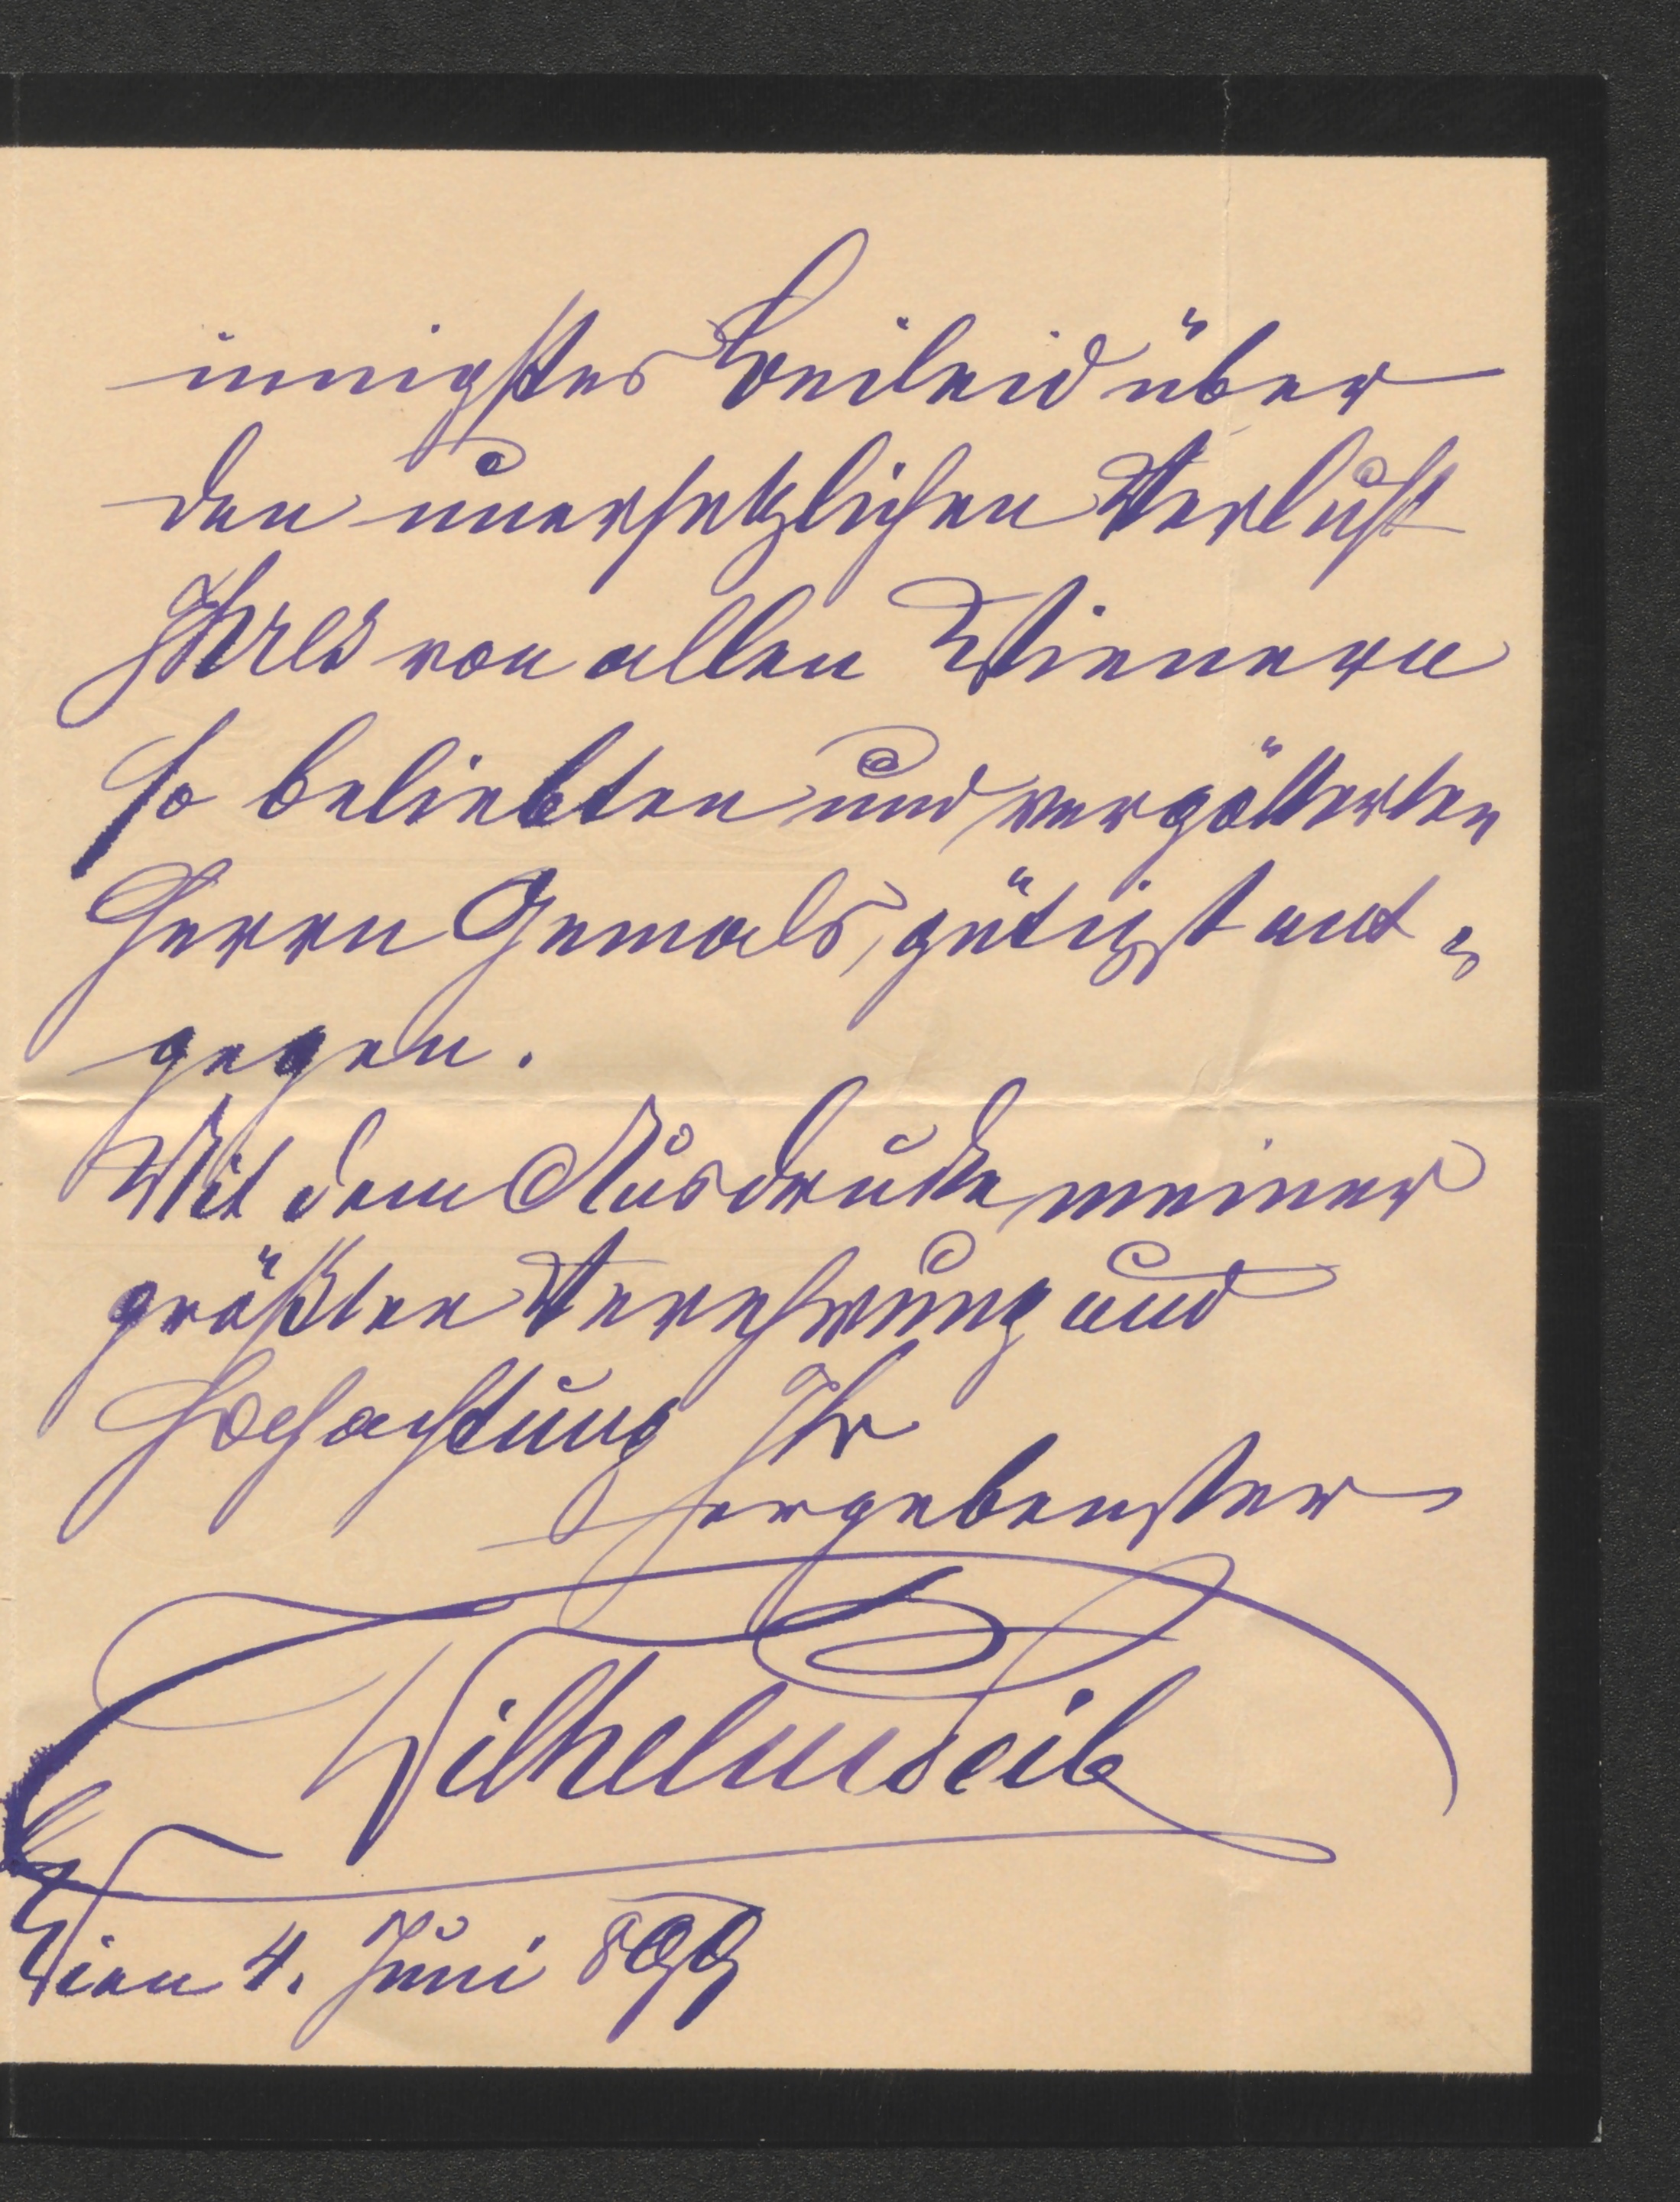 innigstes Beileid über
den unersetzlichen Verlust
Ihres von allen Wienern
so beliebten und vergötterten
Herrn Gemals, gütigst ent-
gegen.
Mit dem Ausdrucke meiner
größten Verehrung und
Hochachtung Ihr
ergebenster
Wilhelm Seib
Wien 4. Juni 899